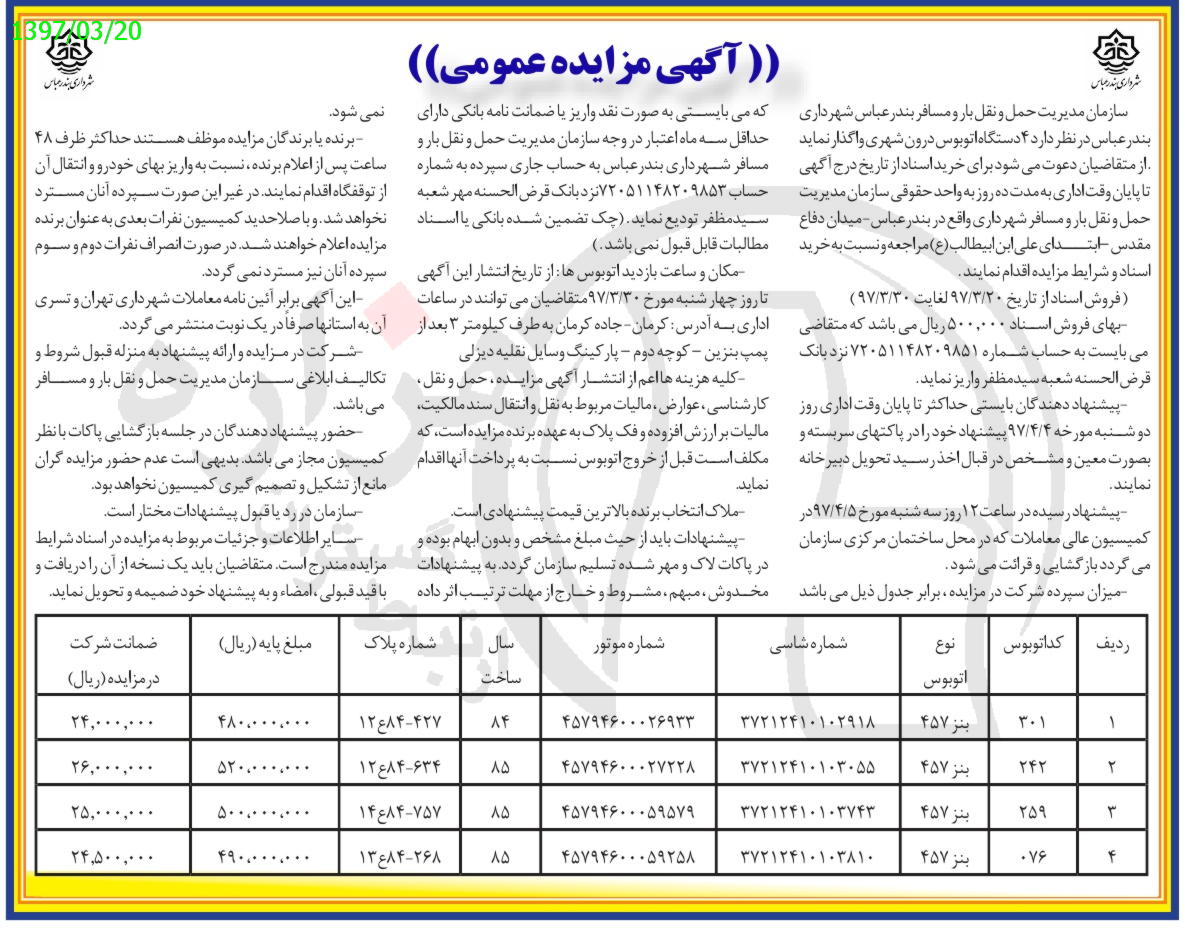 1397/03/20
شهرداری بندرعباس
(( آگهی مزایده عمومی))
شهرداری بندرعباس
سازمان مدیریت حمل و نقل بار و مسافر بندرعباس شهرداری
بندرعباس در نظر دارد ۴دستگاه اتوبوس درون شهری واگذار نماید
.از متقاضیان دعوت می شود برای خرید اسناد از تاریخ درج آگهی
تا پایان وقت اداری به مدت ده روز به واحد حقوقی سازمان مدیریت
حمل و نقل بار و مسافر شهرداری واقع در بندرعباس -میدان دفاع
مقدس -ابتدای علی ابن ابیطالب(ع) مراجعه و نسبت به خرید
اسناد و شرایط مزایده اقدام نمایند.
(فروش اسناد از تاریخ ۹۷/۳/۲۰ لغایت ۹۷/۳/۳۰ )
-بهای فروش اسناد ۵۰۰,۰۰۰ ریال می باشد که متقاضی
می بایست به حساب شماره ۷۲۰۵۱۱۴۸۲۰۹۸۵۱ نزد بانک
قرض الحسنه شعبه سیدمظفر واریز نماید.
-پیشنهاد دهندگان بایستی حداکثر تا پایان وقت اداری روز
دو شنبه مورخه ۹۷/۴/۴پیشنهاد خود را در پاکتهای سربسته و
بصورت معین و مشخص در قبال اخذ رسید تحویل دبیرخانه
نمایند.
-پیشنهاد رسیده در ساعت ۱۲روز سه شنبه مورخ ۹۷/۴/۵در
کمیسیون عالی معاملات که در محل ساختمان مرکزی سازمان
می گردد بازگشایی و قرائت می شود.
-میزان سپرده شرکت در مزایده، برابر جدول ذیل می باشد
که می بایستی به صورت نقد واریز یا ضمانت نامه بانکی دارای
حداقل سه ماه اعتبار در وجه سازمان مدیریت حمل و نقل بار و
مسافر شهرداری بندرعباس به حساب جاری سپرده به شماره
حساب ۷۲۰۵۱۱۴۸۲۰۹۸۵۳نزد بانک قرض الحسنه مهر شعبه
سیدمظفر تودیع نماید. (چک تضمین شده بانکی یا اسناد
مطالبات قابل قبول نمی باشد.)
-مکان و ساعت بازدید اتوبوس ها: از تاریخ انتشار این آگهی
تا روز چهار شنبه مورخ ۹۷/۳/۳۰متقاضیان می توانند در ساعات
اداری به آدرس: کرمان- جاده کرمان به طرف کیلومتر ۳ بعد از
پمپ بنزین - کوچه دوم - پارکینگ وسایل نقلیه دیزلی
-کلیه هزینه ها اعم از انتشار آگهی مزایده، حمل و نقل،
کارشناسی، عوارض، مالیات مربوط به نقل و انتقال سند مالکیت،
مالیات بر ارزش افزوده و فک پلاک به عهده برنده مزایده است، که
مکلف است قبل از خروج اتوبوس نسبت به پرداخت آنها اقدام
نماید.
-ملاک انتخاب برنده بالاترین قیمت پیشنهادی است.
-پیشنهادات باید از حیث مبلغ مشخص و بدون ابهام بوده و
در پاکات لاک و مهر شده تسلیم سازمان گردد. به پیشنهادات
مخدوش، مبهم، مشروط و خارج از مهلت ترتیب اثر داده
نمی شود.
-برنده یا برندگان مزایده موظف هستند حداکثر ظرف ۴۸
ساعت پس از اعلام برنده، نسبت به واریز بهای خودرو و انتقال آن
از توقفگاه اقدام نمایند. در غیر این صورت سپرده آنان مسترد
نخواهد شد. و با صلاحدید کمیسیون نفرات بعدی به عنوان برنده
مزایده اعلام خواهند شد. در صورت انصراف نفرات دوم و سوم
سپرده آنان نیز مسترد نمی گردد.
-این آگهی برابر آئین نامه معاملات شهرداری تهران و تسری
آن به استانها صرفاً در یک نوبت منتشر می گردد.
-شرکت در مزایده و ارائه پیشنهاد به منزله قبول شروط و
تکالیف ابلاغی سازمان مدیریت حمل و نقل بار و مسافر
می باشد.
-حضور پیشنهاد دهندگان در جلسه بازگشایی پاکات با نظر
کمیسیون مجاز می باشد. بدیهی است عدم حضور مزایده گران
مانع از تشکیل و تصمیم گیری کمیسیون نخواهد بود.
-سازمان در رد یا قبول پیشنهادات مختار است.
-سایر اطلاعات و جزئیات مربوط به مزایده در اسناد شرایط
مزایده مندرج است. متقاضیان باید یک نسخه از آن را دریافت و
با قید قبولی، امضاء و به پیشنهاد خود ضمیمه و تحویل نماید.
ردیف کداتوبوس نوع اتوبوس شماره شاسی شماره موتور سال ساخت شماره پلاک مبلغ پایه (ریال) ضمانت شرکت درمزایده (ریال)
۱ ۳۰۱ بنز ۴۵۷ ۳۷۲۱۲۴۱۰۱۰۲۹۱۸ ۴۵۷۹۴۶۰۰۰۲۶۹۳۳ ۸۴ ۸۴-۴۲۷ع۱۲ ۴۸۰,۰۰۰,۰۰۰ ۲۴,۰۰۰,۰۰۰
۲ ۲۴۲ بنز ۴۵۷ ۳۷۲۱۲۴۱۰۱۰۳۰۵۵ ۴۵۷۹۴۶۰۰۰۲۷۲۲۸ ۸۵ ۸۴-۶۳۴ع۱۲ ۵۲۰,۰۰۰,۰۰۰ ۲۶,۰۰۰,۰۰۰
۳ ۲۵۹ بنز ۴۵۷ ۳۷۲۱۲۴۱۰۱۰۳۷۴۳ ۴۵۷۹۴۶۰۰۰۵۹۵۷۹ ۸۵ ۸۴-۷۵۷ع۱۴ ۵۰۰,۰۰۰,۰۰۰ ۲۵,۰۰۰,۰۰۰
۴ ۰۷۶ بنز ۴۵۷ ۳۷۲۱۲۴۱۰۱۰۳۸۱۰ ۴۵۷۹۴۶۰۰۰۵۹۲۵۸ ۸۵ ۸۴-۲۶۸ع۱۳ ۴۹۰,۰۰۰,۰۰۰ ۲۴,۵۰۰,۰۰۰